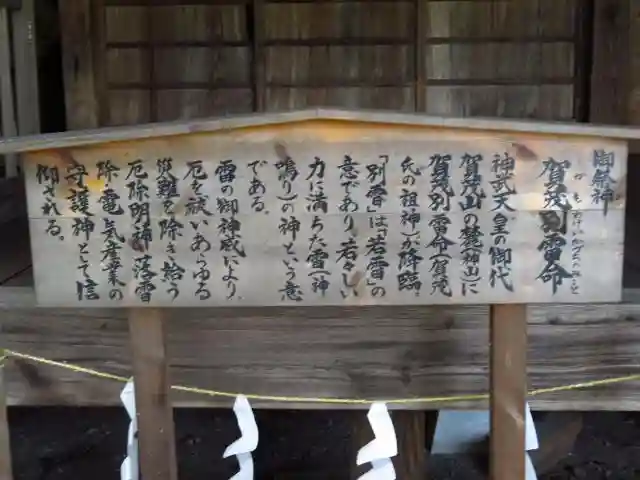 御祭神
賀茂別雷命
かもわけいかづちのみこと
神武天皇の御代
賀茂山の麓(神山)に
賀茂別雷命(賀茂
氏の祖神)が降臨。
「別雷」は「若雷」の
意であり、若々しい
力に満ちた雷(神
鳴り)の神という意
である。
雷の御神威により、
厄を祓いあらゆる
災難を除き給う
厄除明神・落雷
除・電気産業の
守護神として信
仰される。